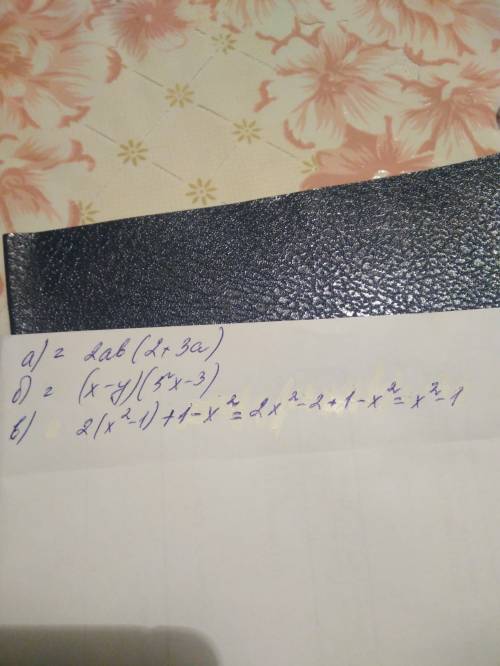 а) = 2ab(2+3a)
б) = (x-y)(5x-3)
в) 2(x²-1)+1-x² = 2x²-2+1-x² = x²-1